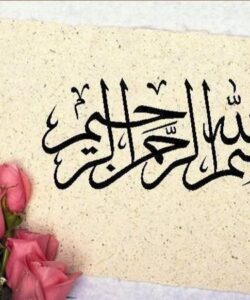 الله الرَّحمن الرحيم